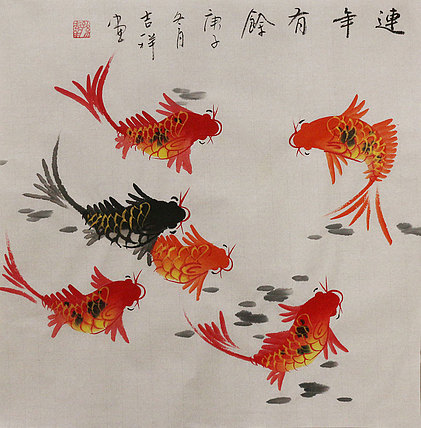 連年有餘
庚子
冬月
吉祥
堂